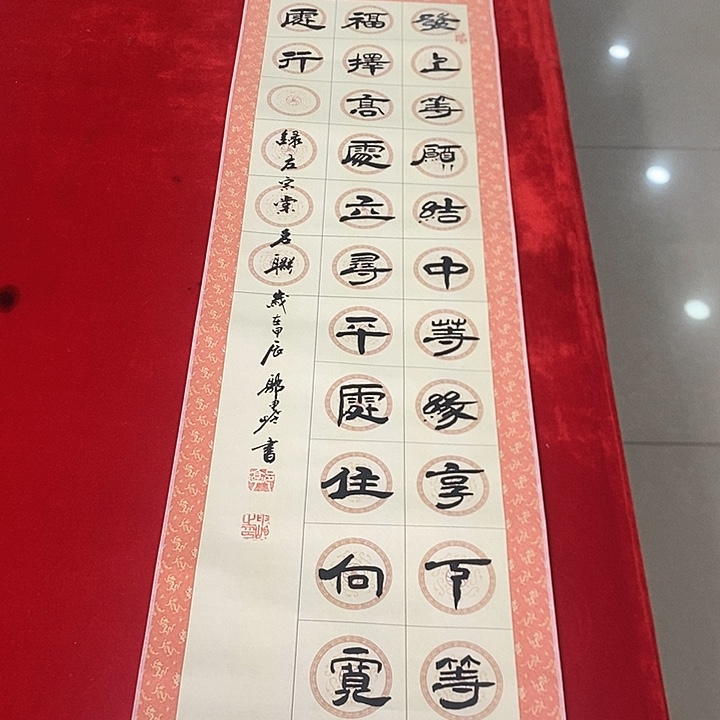 發上等願結中等緣享下等
福擇高處立尋平處住向寬
處行
錄左宗棠名聯歲在甲辰書